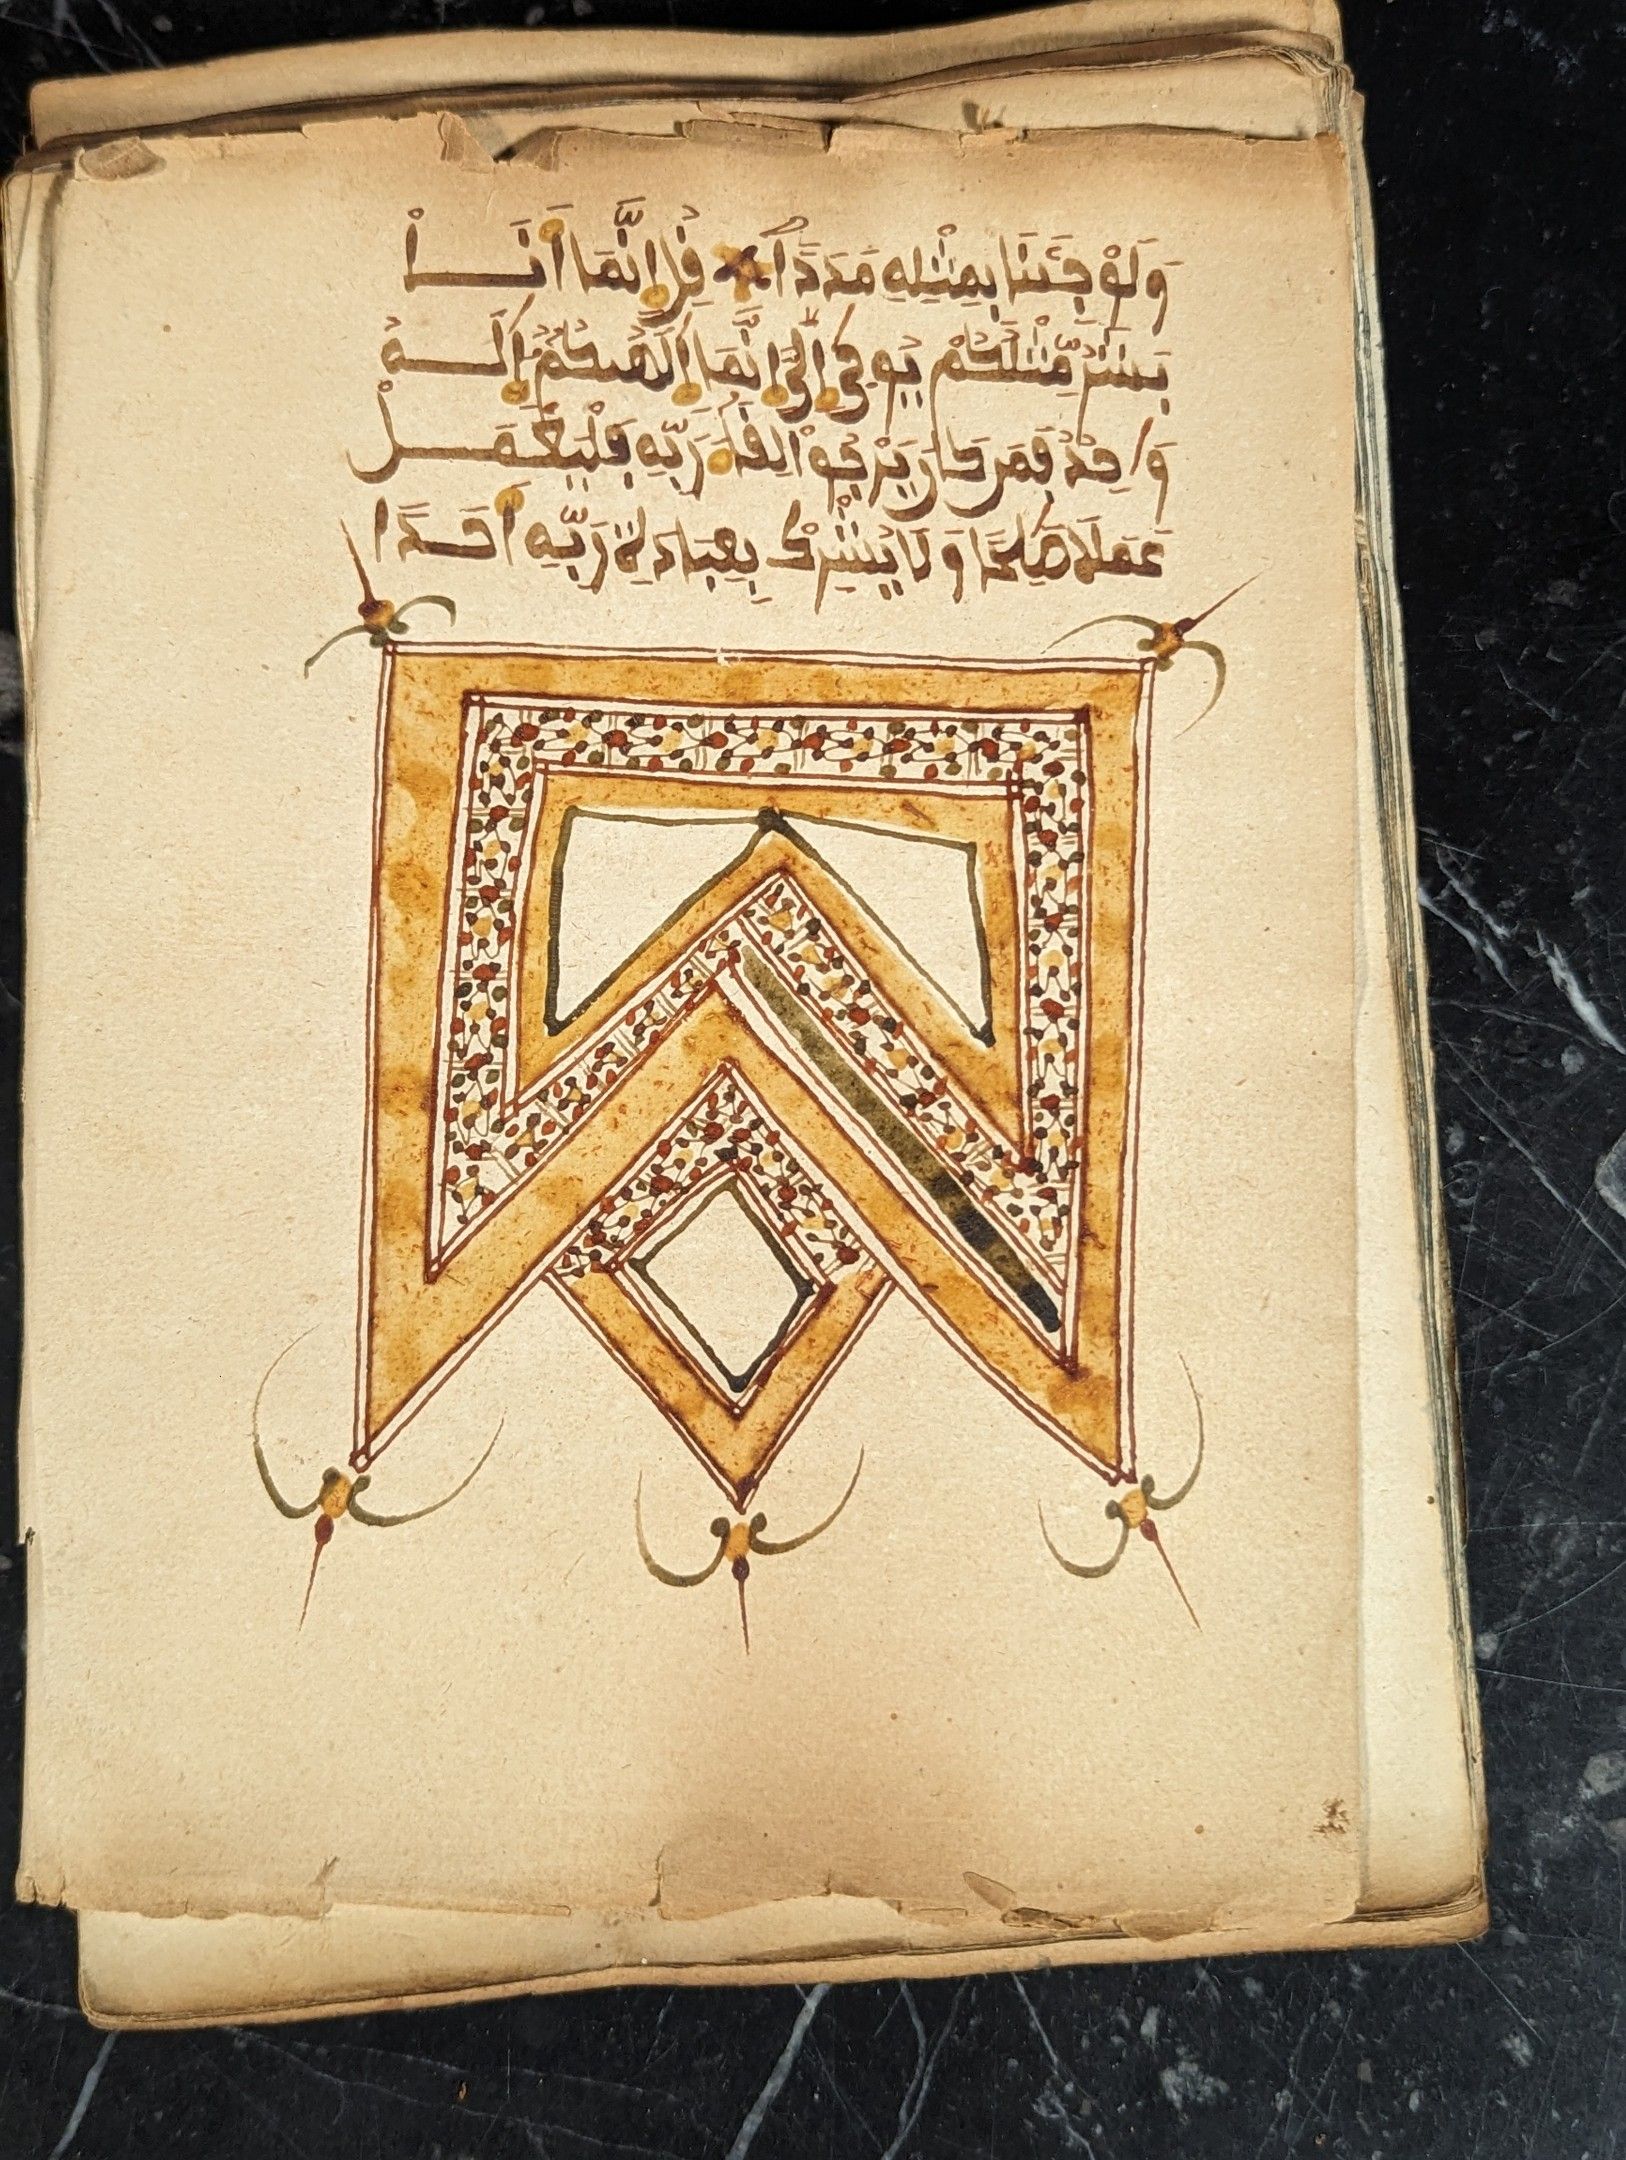 وَلَوْ جِئْنَا بِمِثْلِهِ مَدَدًا قُلْ إِنَّمَا أَنَا
بَشَرٌ مِّثْلُكُمْ يُوحَىٰ إِلَيَّ أَنَّمَا إِلَٰهُكُمْ إِلَٰهٌ
وَٰحِدٌ فَمَن كَانَ يَرْجُوا لِقَاءَ رَبِّهِ فَلْيَعْمَلْ
عَمَلًا صَٰلِحًا وَلَا يُشْرِكْ بِعِبَادَةِ رَبِّهِ أَحَدًا